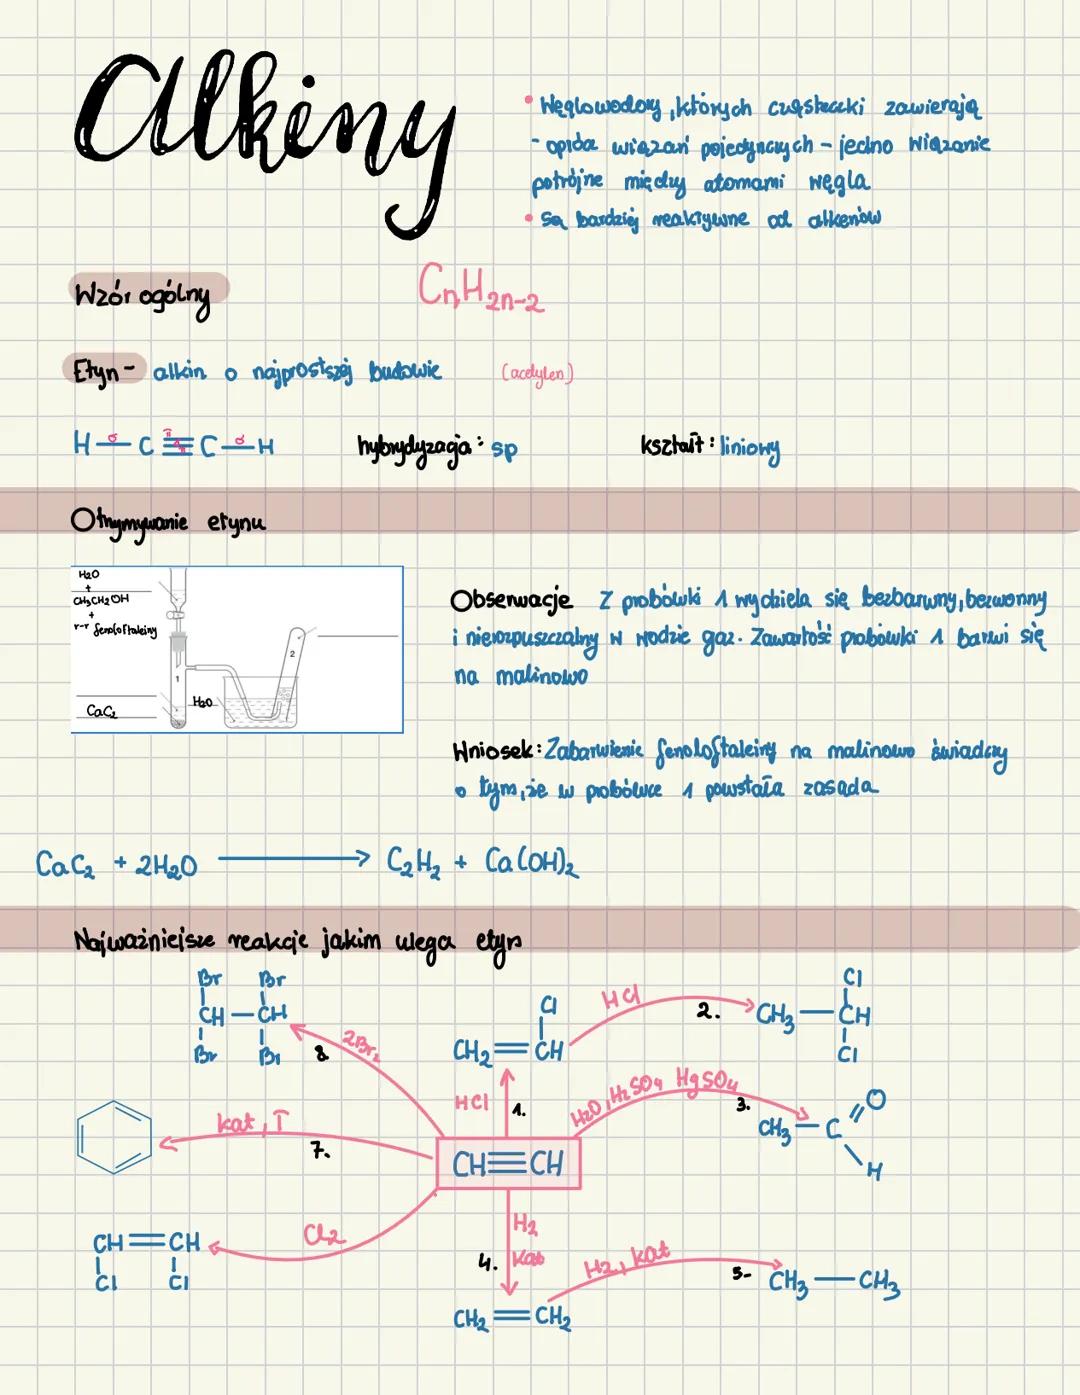 Alkiny
• Węglowodory, których cząsteczki zawierają
- oprócz wiązań pojedynczych - jedno wiązanie
potrójne między atomami węgla
• są bardziej reaktywne od alkenów
Wzór ogólny
CnH2n-2
Etyn - alkin o najprostszej budowie (acetylen)
H σ C π π C σ H
hybrydyzacja: sp
kształt: liniowy
Otrzymywanie etynu
H2O
+
CH3CH2OH
+
r-r fenoloftaleiny
1
2
CaC2
H2O
Obserwacje Z probówki 1 wydziela się bezbarwny, bezwonny
i nierozpuszczalny w wodzie gaz. Zawartość probówki 1 barwi się
na malinowo
Wniosek: Zabarwienie fenoloftaleiny na malinowo świadczy
o tym, że w probówce 1 powstała zasada
CaC2 + 2H2O ⟶ C2H2 + Ca(OH)2
Najważniejsze reakcje jakim ulega etyn
Br Br
CH — CH
Br Br
8.
2Br2
Cl
CH2 = CH
HCl
2.
Cl
CH3 — CH
Cl
HCl
1.
H2O, H2SO4 HgSO4
3.
CH3 — C
O
H
kat, T
7.
CH≡CH
CH = CH
Cl Cl
Cl2
H2
4. kat
H2, kat
5-
CH3 — CH3
CH2 = CH2